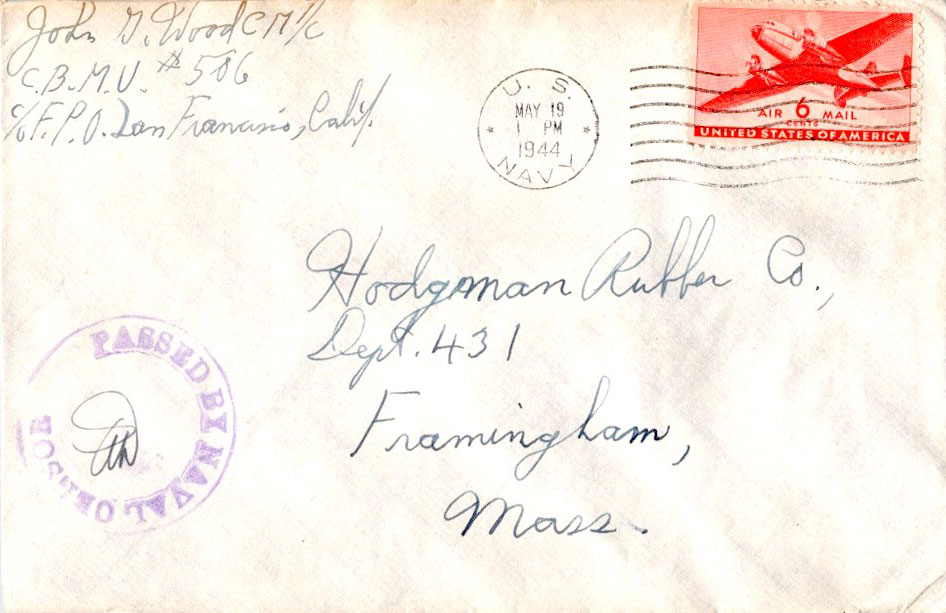 John G. Wood CM 1/c
C.B.M.U. #506
c/o F.P.O. San Francisco, Calif.
U. S.
MAY 19
1 PM
1944
NAVY
AIR 6 MAIL
CENTS
UNITED STATES OF AMERICA
Hodgman Rubber Co.,
Dept. 431
Framingham,
Mass.
PASSED BY NAVAL CENSOR